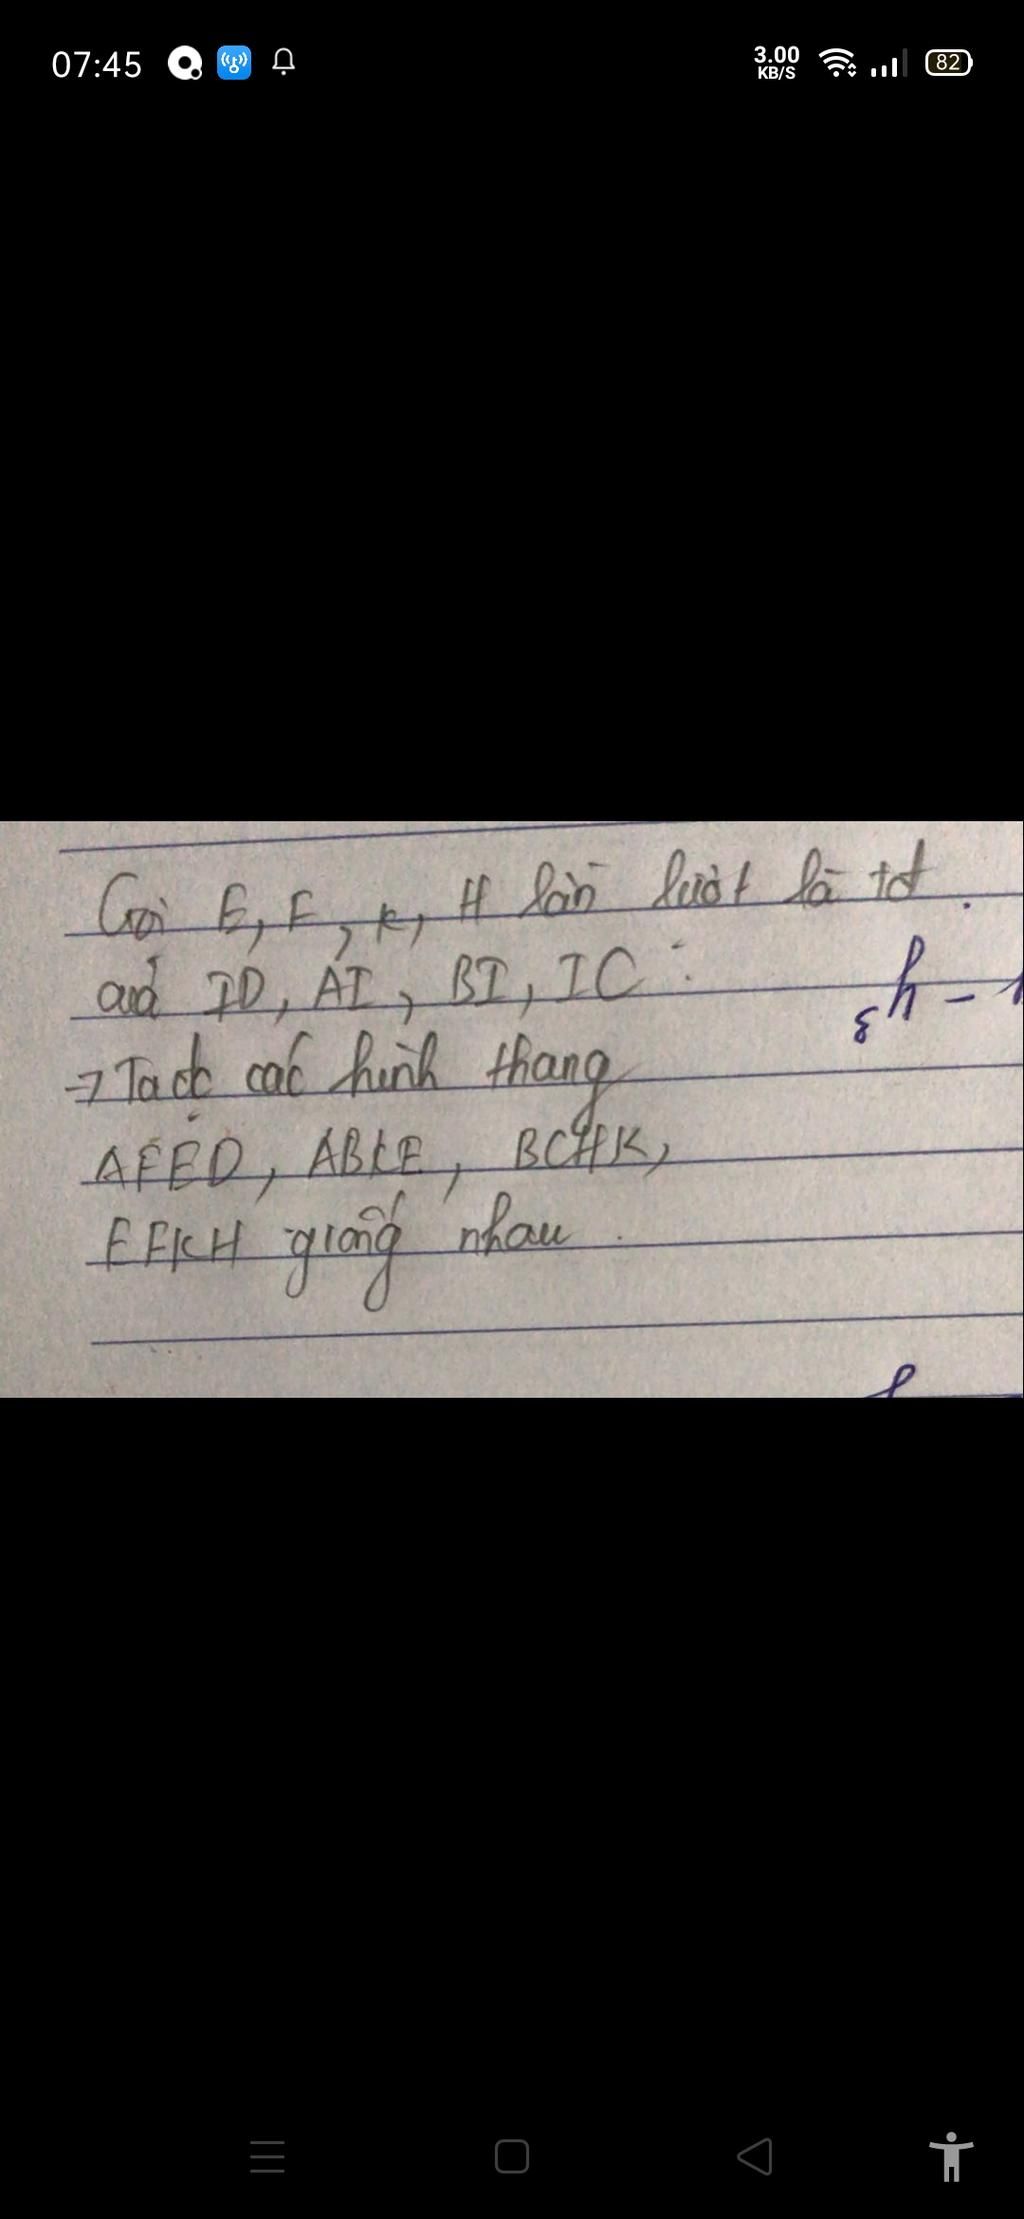 07:45
3.00
KB/S
82
Gọi E, F, K, H lần lượt là td
quả ID, AI, BI, IC :
→ Ta dc các hình thang
AFED, ABKE, BCHK,
EFKH giống nhau .